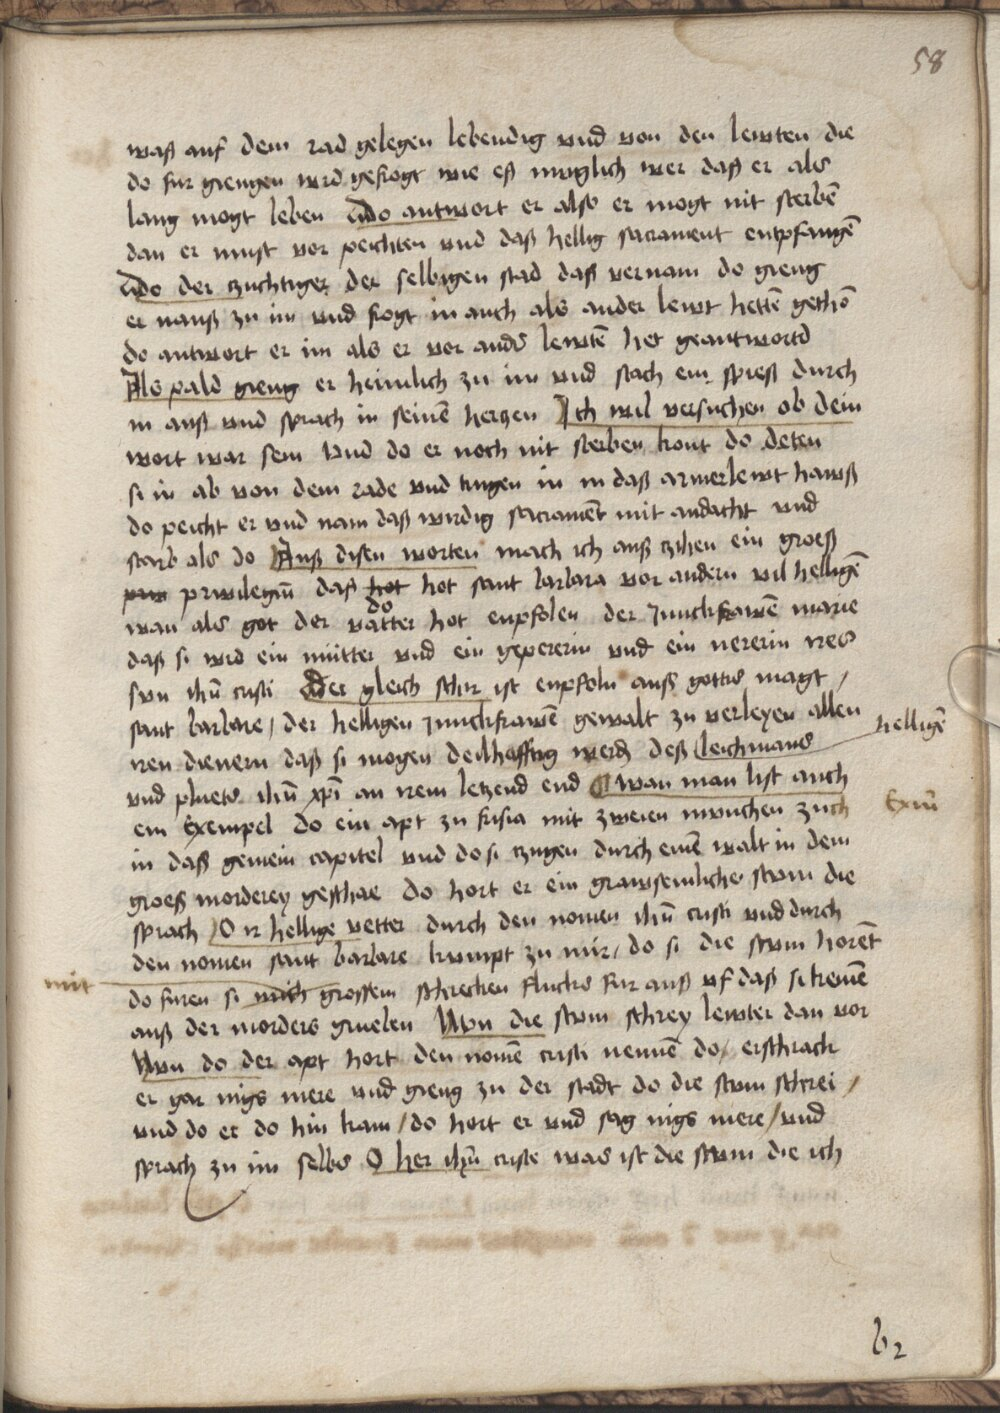 58
waß auf dem rad gelegen lebendig vnd von den lewten die
do fur giengen wrd gefrogt wie eß muglich wer daß er als
lang mogt leben Udo antwort er also er mogt nit sterbē
dan er must vor peichten vnd daß hellig sacrament entpfangē
Udo der zuchtiger der selbigen stad daß vernam do gieng
er nauß zu im vnd frogt in auch als ander lewt hettē gethō
do antwort er im als er vor andˢ lewtē het geantwortd
Als pald gieng er heimlich zu im vnd stach ein spieß durch
in auß vnd sprach in seinē herzen Ich wil versuchen ob dein
wort war sein vnd do er noch nit sterben kont do deten
si in ab von dem rade vnd trugen in in daß armerlewt hawß
do peicht er vnd nam daß wirdig sacramēt mit andacht vnd
starb als do Auß disen worten mach ich auß zihen ein groeß
priuilegiū daß hot hot sant barbara vor andern vil helligē
wan als got der vatter do hot enpfolen der Junckfrawē marie
daß si wrd ein mütter vnd ein gepererin vnd ein nererin ires
sun ihū cristi Der gleich schir ist enpfoln auß gottes magt /
sant barbare / der helligen Junckfrawē gewalt zu verleyen allen
iren dienern daß si mogen deilhafftig werdē deß leichnams helligē
vnd pluets ihū xpi an irem letzend end wan man list auch
ein Exempel do ein apt zu susia mit zweien munchen zuch Exm̄
in daß gemein capitel vnd do si zugen durch einē walt in dem
groeß morderey geschae do hort er ein grawsemliche stym die
sprach / O ir hellige vetter durch den nomen ihū cristi vnd durch
den nomen sant barbare kumpt zu mir / do si die stym horēt
mit
do furen si mich grossem schrecken fluchs fur auß vf daß si kemē
auß der morders gruelen Nvn die stym schrey lewter dan vor
Nvn do der apt hort den nomē cristi nennē do / erschrack
er gar nigs mere vnd gieng zu der stadt do die stym schrei /
vnd do er do hin kam / do hort er vnd sag nigs mere / vnd
sprach zu im selbs O her ihū criste was ist die stym die ich
b2